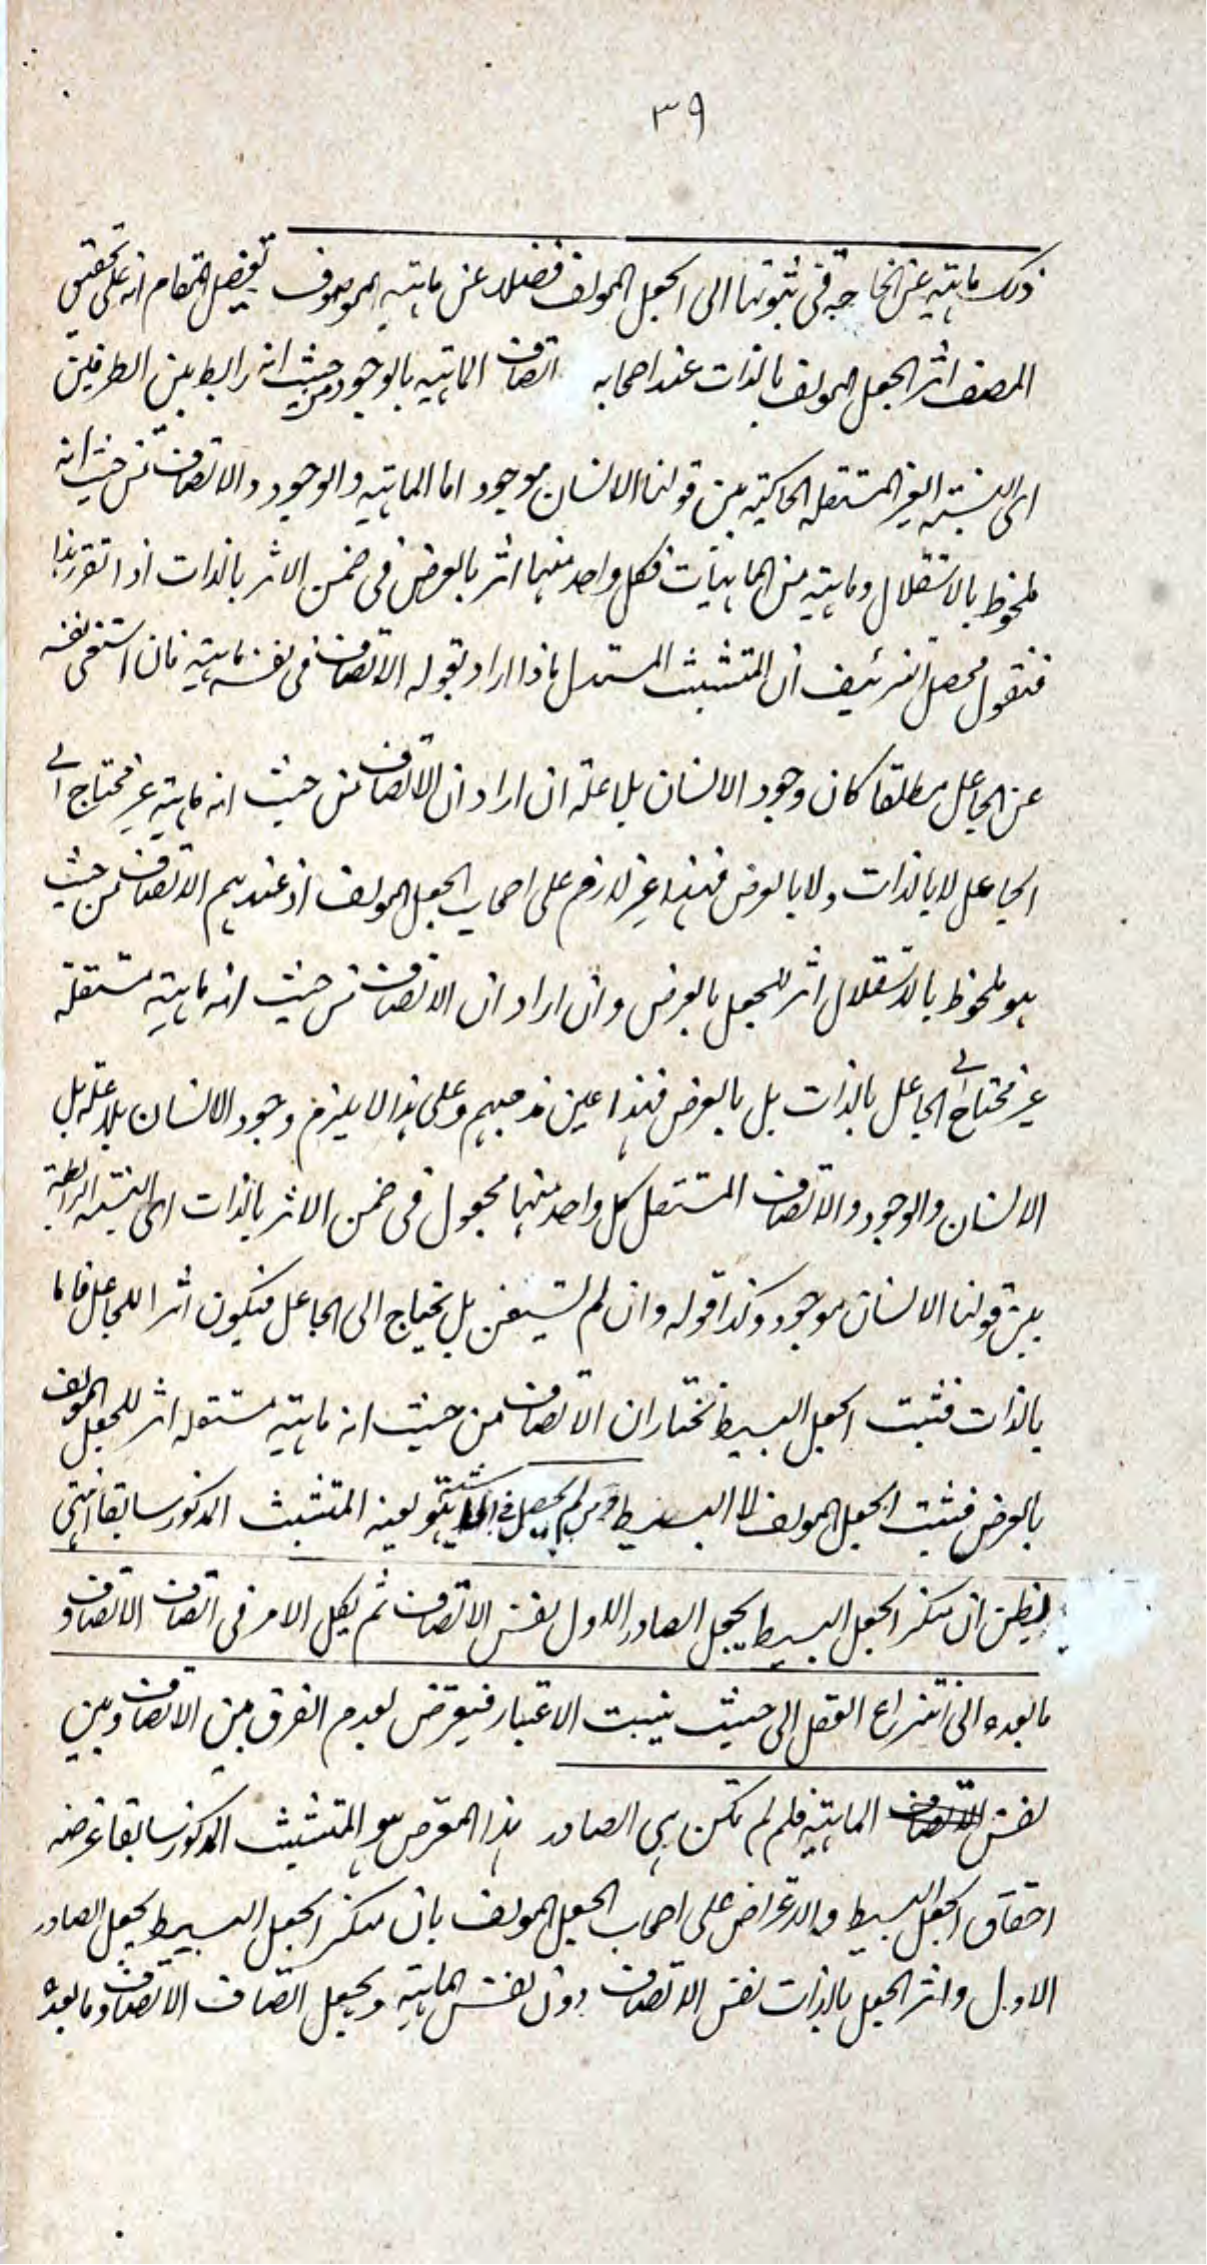 ٣٩
ذلك ماهيته عن الحاجة فى ثبوتها الى الجعل المولف فضلا عن ماهية الموصوف تفصيل المقام انه على تحقيق
المصنف اثر الجعل المولف بالذات عند اصحابه اتصاف الماهية بالوجود من حيث انه رابط بين الطرفين
اى النسبة الغير المستقلة الحاكية بين قولنا الانسان موجود اما الماهية والوجود والاتصاف من حيث انه
ملحوظ بالاستقلال وماهية من الماهيات فكل واحد منها اثر بالعرض فى ضمن الاثر بالذات اذا تقرر هذا
فنقول محصل التزئيف ان المتشبث المستدل ماذا اراد بقوله الاتصاف فى نفسه ماهية فان استغنى نفسه
عن الجاعل مطلقا كان وجود الانسان بلا علة ان اراد ان الاتصاف من حيث انه ماهية غير محتاج الى
الجاعل لا بالذات ولا بالعرض فهذا غير لازم على اصحاب الجعل المولف اذ عندهم الاتصاف من حيث
هو ملحوظ بالاستقلال اثر للجعل بالعرض وان اراد ان الاتصاف من حيث انه ماهية مستقلة
غير محتاج الى الجاعل بالذات بل بالعرض فهذا عين مذهبهم وعلى هذا لا يلزم وجود الانسان بلا علة بل
الانسان والوجود والاتصاف المستقل كل واحد منها مجعول فى ضمن الاثر بالذات اى النسبة الرابطة
بين قولنا الانسان موجود وكذا قوله وان لم يستغن بل يحتاج الى الجاعل فيكون اثرا للجاعل فاما
بالذات فثبت الجعل البسيط نختار ان الاتصاف من حيث انه ماهية مستقلة اثر للجعل المولف
بالعرض فثبت الجعل المولف لا البسيط قوله من لم يحصل فى الحاشية هو بعينه المتشبث المذكور سابقا انتهى
يظن ان منكر الجعل البسيط يجعل الصادر الاول نفس الاتصاف ثم يكل الامر فى اتصاف الاتصاف و
ما بعده الى انتزاع العقل الى حيث ينبت الاعتبار فيعترض بعدم الفرق بين الاتصاف وبين
نفس الماهية فلم لم تكن هى الصادر هذا المعترض هو المتشبث المذكور سابقا غرضه
احقاق الجعل البسيط والاعتراض على اصحاب الجعل المولف بان منكر الجعل البسيط يجعل الصادر
الاول واثر الجعل بالذات نفس الاتصاف دون نفس الماهية ويجعل اتصاف الاتصاف وما بعده